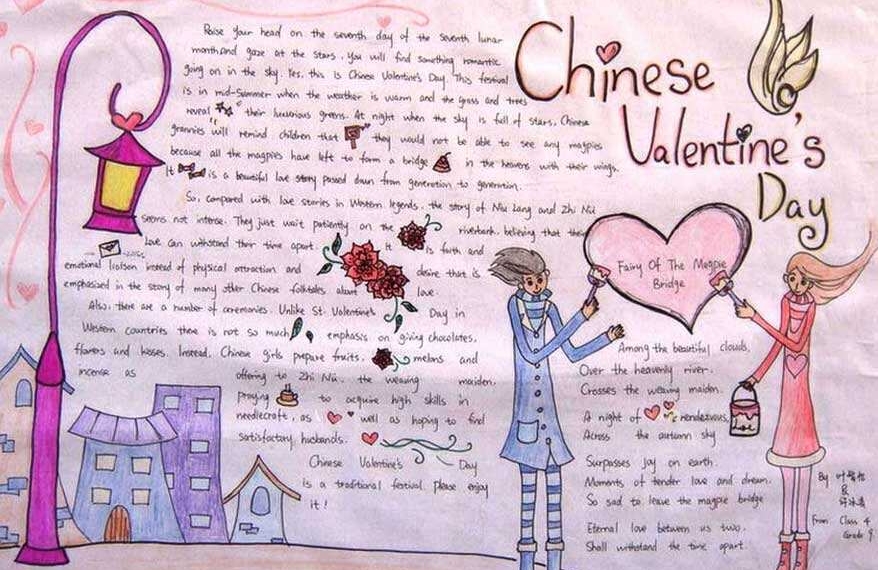 Chinese
Valentine's
Day
Raise your head on the seventh day of the seventh lunar
month, and gaze at the stars. You will find something romantic
going on in the sky. Yes, this is Chinese Valentine's Day. This festival
is in mid-summer when the weather is warm and the grass and trees
reveal their luxurious greens. At night when the sky is full of stars, Chinese
grannies will remind children that they would not be able to see any magpies
because all the magpies have left to form a bridge in the heavens with their wings.
It is a beautiful love story passed down from generation to generation.
So, compared with love stories in Western legends, the story of Niu Lang and Zhi Nü
seems not intense. They just wait patiently on the riverbank, believing that their
Love can withstand their time apart. It is faith and
emotional liaison instead of physical attraction and desire that is
emphasized in the story of many other Chinese folktales about love.
Also, there are a number of ceremonies. Unlike St. Valentine's Day in
Western countries there is not so much emphasis on giving chocolates,
flowers and kisses. Instead, Chinese girls prepare fruits, melons and
incense as offering to Zhi Nü, the weaving maiden,
praying to acquire high skills in
needlecraft, as well as hoping to find
satisfactory husbands.
Chinese Valentine's Day
is a traditional festival. please enjoy
it!
Fairy Of The Magpie
Bridge
Among the beautiful clouds,
Over the heavenly river,
Crosses the weaving maiden.
A night of rendezvous,
Across the autumn sky
Surpasses joy on earth.
Moments of tender love and dream.
So sad to leave the magpie bridge
Eternal love between us two.
Shall withstand the time apart.
By 叶
From Class 4
Grade 9